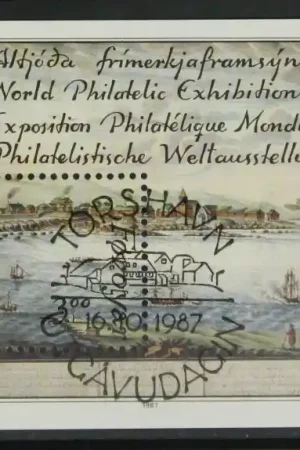 Altjóða frímerkjaframsýn
World Philatelic Exhibition
Exposition Philatélique Mond
Philatelistische Weltausstelle
TÓRSHAVN
Føroyar
300
16.10.1987
GÁVUDAGIN
1987